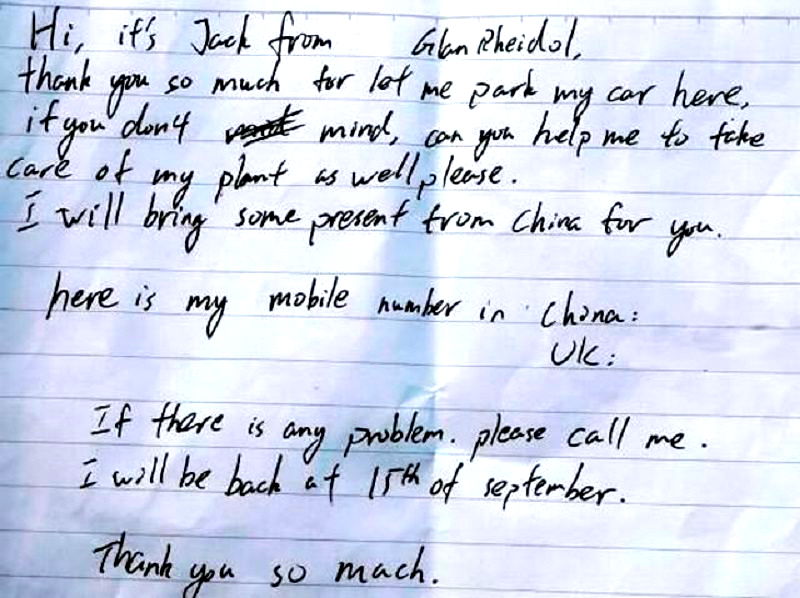 Hi, it's Jack from Glan Rheidol,
thank you so much for let me park my car here,
if you don't mind, can you help me to take
care of my plant as well please.
I will bring some present from China for you.
here is my mobile number in China:
UK:
If there is any problem. please call me.
I will be back at 15th of september.
Thank you so mach.